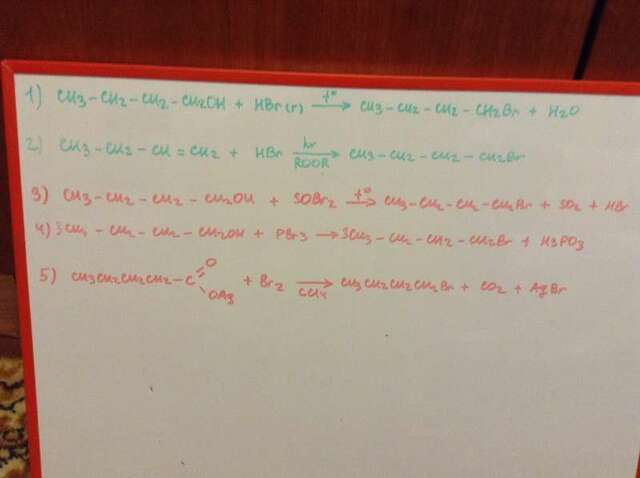 1) CH3-CH2-CH2-CH2OH + HBr(г) t° → CH3-CH2-CH2-CH2Br + H2O
2) CH3-CH2-CH=CH2 + HBr hν ROOR → CH3-CH2-CH2-CH2Br
3) CH3-CH2-CH2-CH2OH + SOBr2 t° → CH3-CH2-CH2-CH2Br + SO2 + HBr
4) 3CH3-CH2-CH2-CH2OH + PBr3 → 3CH3-CH2-CH2-CH2Br + H3PO3
5) CH3CH2CH2CH2-C=O OAg + Br2 CCl4 → CH3CH2CH2CH2Br + CO2 + AgBr